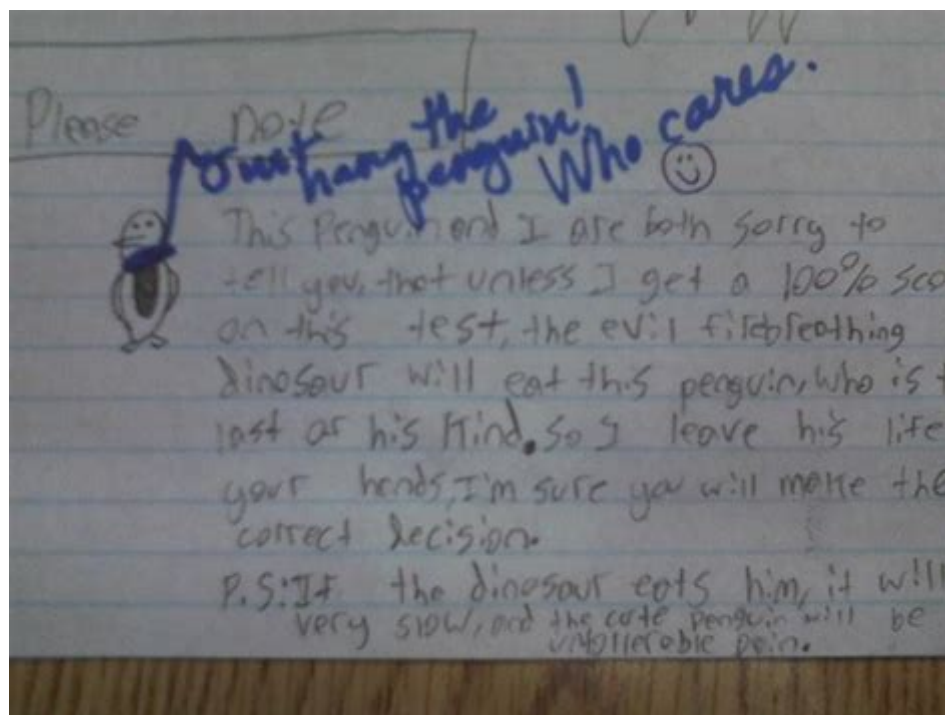 Please note
Just hang the penguin! Who cares.
This Penguin and I are both sorry to
tell you, that unless I get a 100% sco
on this test, the evil firebreathing
dinosaur will eat this penguin, who is t
last of his Kind. So I leave his life
your hands, I'm sure you will make the
correct decision.
P.S: If the dinosaur eats him, it will
very slow, and the cute penguin will be
untollerable pain.